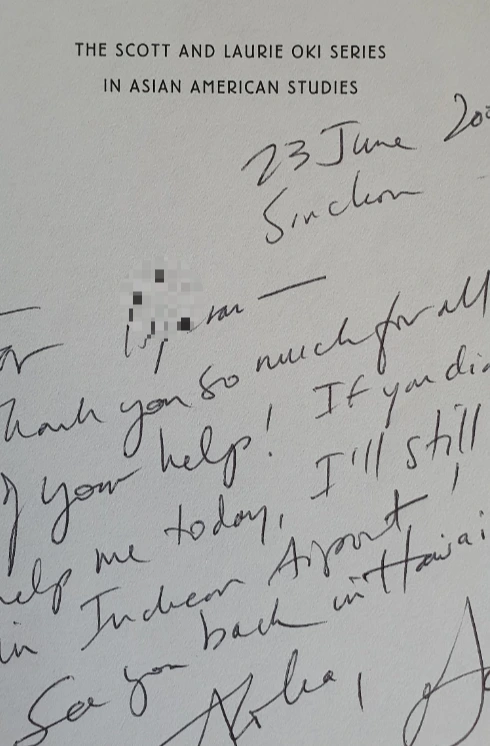 THE SCOTT AND LAURIE OKI SERIES
IN ASIAN AMERICAN STUDIES
23 June 20
Sinchon
Thank you so much for all
of your help! If you did
help me today, I'll still
in Incheon Airport!
See you back in Hawai
Aloha,